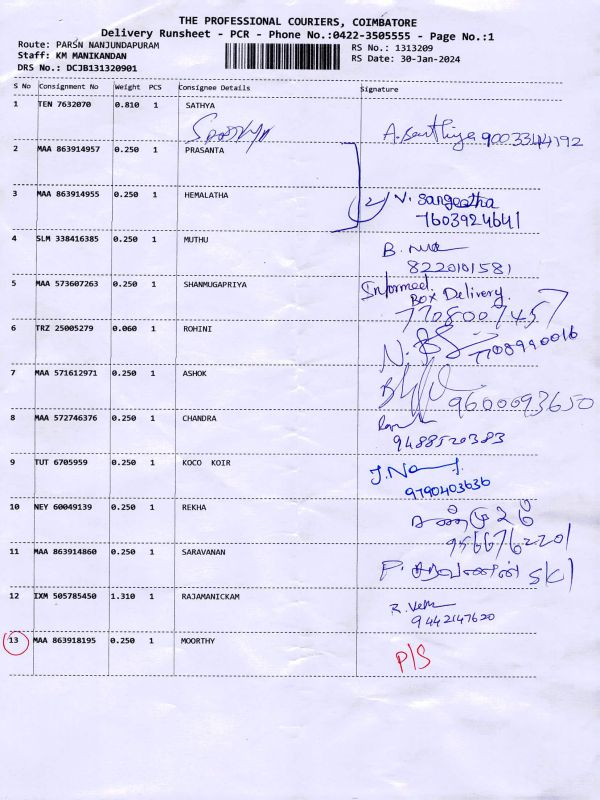 THE PROFESSIONAL COURIERS, COIMBATORE
Delivery Runsheet - PCR - Phone No.:0422-3505555 - Page No.:1
Route: PARSN NANJUNDAPURAM RS No.: 1313209
Staff: KM MANIKANDAN RS Date: 30-Jan-2024
DRS No.: DCJB131320901
S No Consignment No Weight PCS Consignee Details Signature
1 TEN 7632070 0.810 1 SATHYA
9003344192
2 MAA 863914957 0.250 1 PRASANTA
3 MAA 863914955 0.250 1 HEMALATHA
2 V. Sangeetha
7603924641
4 SLM 338416385 0.250 1 MUTHU
B.
8220101581
5 MAA 573607263 0.250 1 SHANMUGAPRIYA Informed
Box Delivery.
7708007457
6 TRZ 25005279 0.060 1 ROHINI
7708990016
7 MAA 571612971 0.250 1 ASHOK
9600093650
8 MAA 572746376 0.250 1 CHANDRA
9488520383
9 TUT 6705959 0.250 1 KOCO KOIR
9790403636
10 NEY 60049139 0.250 1 REKHA
9566762201
11 MAA 863914860 0.250 1 SARAVANAN
P. சரவணன்
12 IXM 505785450 1.310 1 RAJAMANICKAM
9442147620
13 MAA 863918195 0.250 1 MOORTHY
P/S